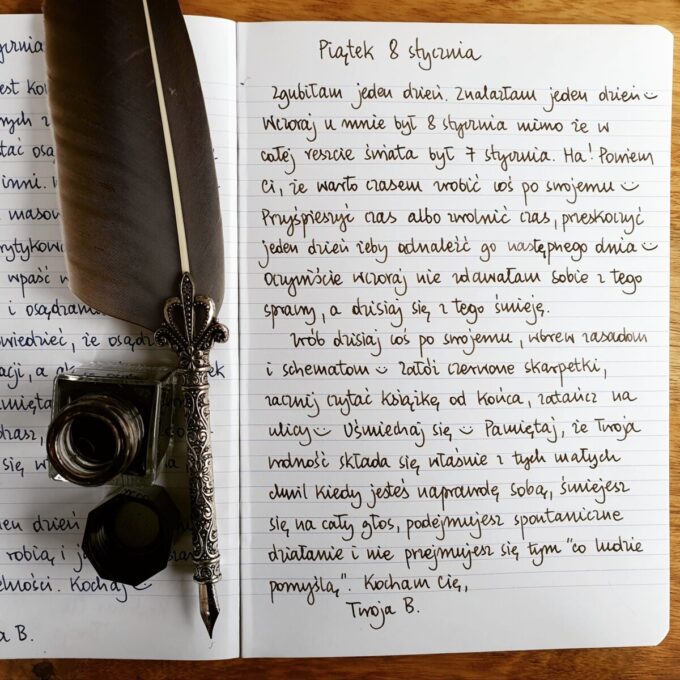 ycznia
est Ko
nych z
tać osą
inni.
masow
rytykow
wpaść w
i osądzam
wiedzieć, że osądz
acji, a
pamięta
się, w
dzień
robią i j
lności. Kochaj
a B.
Piątek 8 stycznia
Zgubiłam jeden dzień. Znalazłam jeden dzień☺
Wczoraj u mnie był 8 stycznia mimo że w
całej reszcie świata był 7 stycznia. Ha! Powiem
Ci, że warto czasem zrobić coś po swojemu☺
Przyśpieszyć czas albo zwolnić czas, przeskoczyć
jeden dzień żeby odnaleźć go następnego dnia☺
Oczywiście wczoraj nie zdawałam sobie z tego
sprawy, a dzisiaj się z tego śmieję.
Zrób dzisiaj coś po swojemu, wbrew zasadom
i schematom☺ Załóż czerwone skarpetki,
zacznij czytać książkę od końca, zatańcz na
ulicy☺ Uśmiechaj się☺ Pamiętaj, że Twoja
wolność składa się właśnie z tych małych
chwil kiedy jesteś naprawdę sobą, śmiejesz
się na cały głos, podejmujesz spontaniczne
działanie i nie przejmujesz się tym "co ludzie
pomyślą". Kocham Cię,
Twoja B.